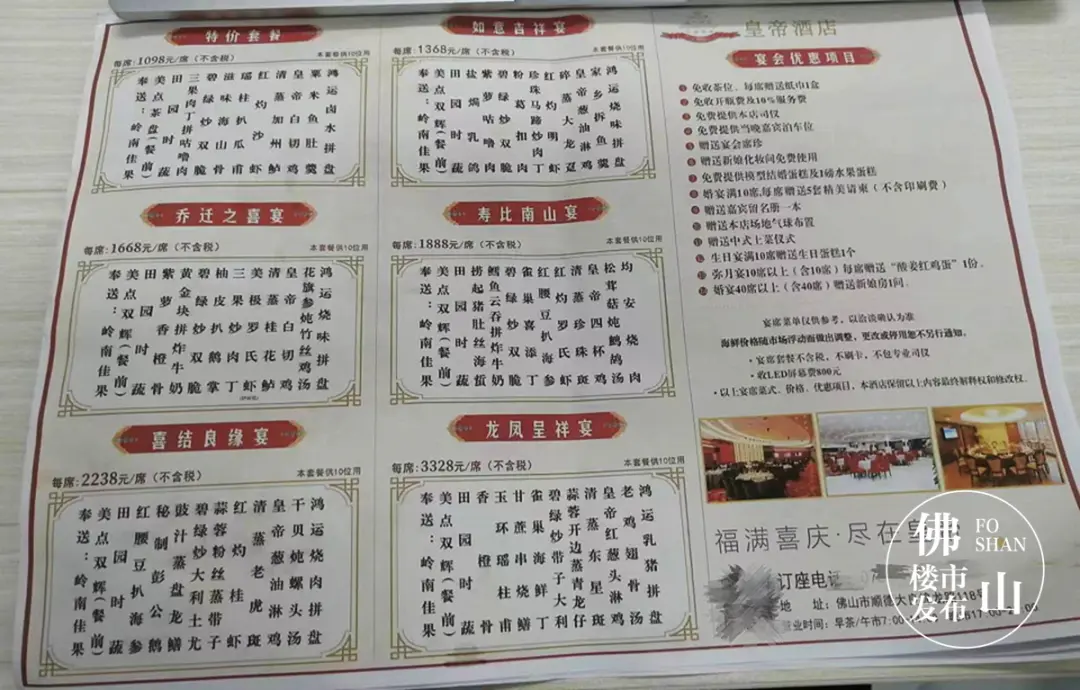 特价套餐
每席:1098元/席(不含税)
本套餐供10位用
鸿运卤水拼盘
粟米鱼肚羹
皇帝白切鸡
清蒸加州鲈
红灼沙虾
瑶柱扒瓜甫
滋味海山骨
碧绿炒双脆
三果肉丁拼咕噜肉
田园时蔬
美点茶盘(餐前)
奉送：岭南佳果
如意吉祥宴
每席:1368元/席(不含税)
本套餐供10位用
鸿运烧味拼盘
家乡拆鱼羹
皇帝葱油淋鸡
蒸大龙趸
红灼明虾
珍珠马蹄炒肉丁
粉葛扣肉
碧绿炒双脆
紫萝咕噜肉
盐焗乳鸽
田园时蔬
美点双辉(餐前)
奉送：岭南佳果
乔迁之喜宴
每席:1668元/席(不含税)
本套餐供10位用
鸿运烧味拼盘
花旗参炖竹丝鸡汤
皇帝白切鸡
清蒸桂花鲈
美极罗氏虾
三果炒肉丁
柚皮扒鹅掌
碧绿炒双脆
黄金块拼炸牛奶
紫萝香
田园时蔬
美点双辉(餐前)
奉送：岭南佳果
寿比南山宴
每席:1888元/席(不含税)
本套餐供10位用
均安烧肉
松茸菇炖鹧鸪汤
皇帝四杯鸡
清蒸珍珠斑
红灼罗氏虾
红腰豆扒海参
雀巢炒添丁
碧绿炒双脆
鳕鱼云吞拼炸牛奶
捞起猪肚丝海蜇
田园时蔬
美点双辉(餐前)
奉送：岭南佳果
喜结良缘宴
每席:2238元/席(不含税)
本套餐供10位用
鸿运烧肉拼盘
干贝炖螺头汤
皇帝葱油淋鸡
清蒸老虎斑
红灼桂虾
蒜蓉粉丝蒸带子
碧绿炒大利土尤
豉汁蒸盘龙鳝
秘制彭公鹅
红腰豆扒海参
田园时蔬
美点双辉(餐前)
奉送：岭南佳果
龙凤呈祥宴
每席:3328元/席(不含税)
本套餐供10位用
鸿运乳猪拼盘
老鸡翅骨汤
皇帝红葱头淋鸡
清蒸东星斑
蒜蓉开边蒸青龙仔
碧绿炒带子大利
雀巢海鲜丁
甘蔗串烧鳝
玉环瑶柱甫
香橙骨
田园时蔬
美点双辉(餐前)
奉送：岭南佳果
皇帝酒店
宴会优惠项目
免收茶位、每席赠送纸巾1盒
免收开瓶费及10%服务费
免费提供本店司仪
免费提供当晚嘉宾泊车位
赠送宴会席珍
赠送新娘化妆间免费使用
免费提供模型结婚蛋糕及1磅水果蛋糕
婚宴满10席,每席赠送5套精美请柬(不含印刷费)
赠送嘉宾留名册一本
赠送本店场地气球布置
赠送中式上菜仪式
生日宴满10席赠送生日蛋糕1个
弥月宴10席以上(含10席)每席赠送“酸姜红鸡蛋”1份。
婚宴40席以上(含40席)赠送新娘房1间。
宴席菜单仅供参考，以洽谈确认为准
海鲜价格随市场浮动而做出调整，更改或停用恕不另行通知。
·宴席套餐不含税，不刷卡，不包专业司仪
·收LED屏幕费800元
·以上宴席菜式、价格、优惠项目，本酒店保留以上内容最终解释权和修改权。
福满喜庆·尽在皇
订座电话
地 址：佛山市顺德大
118号
营业时间：早茶/午市7:00
佛山
FO SHAN
楼市发布